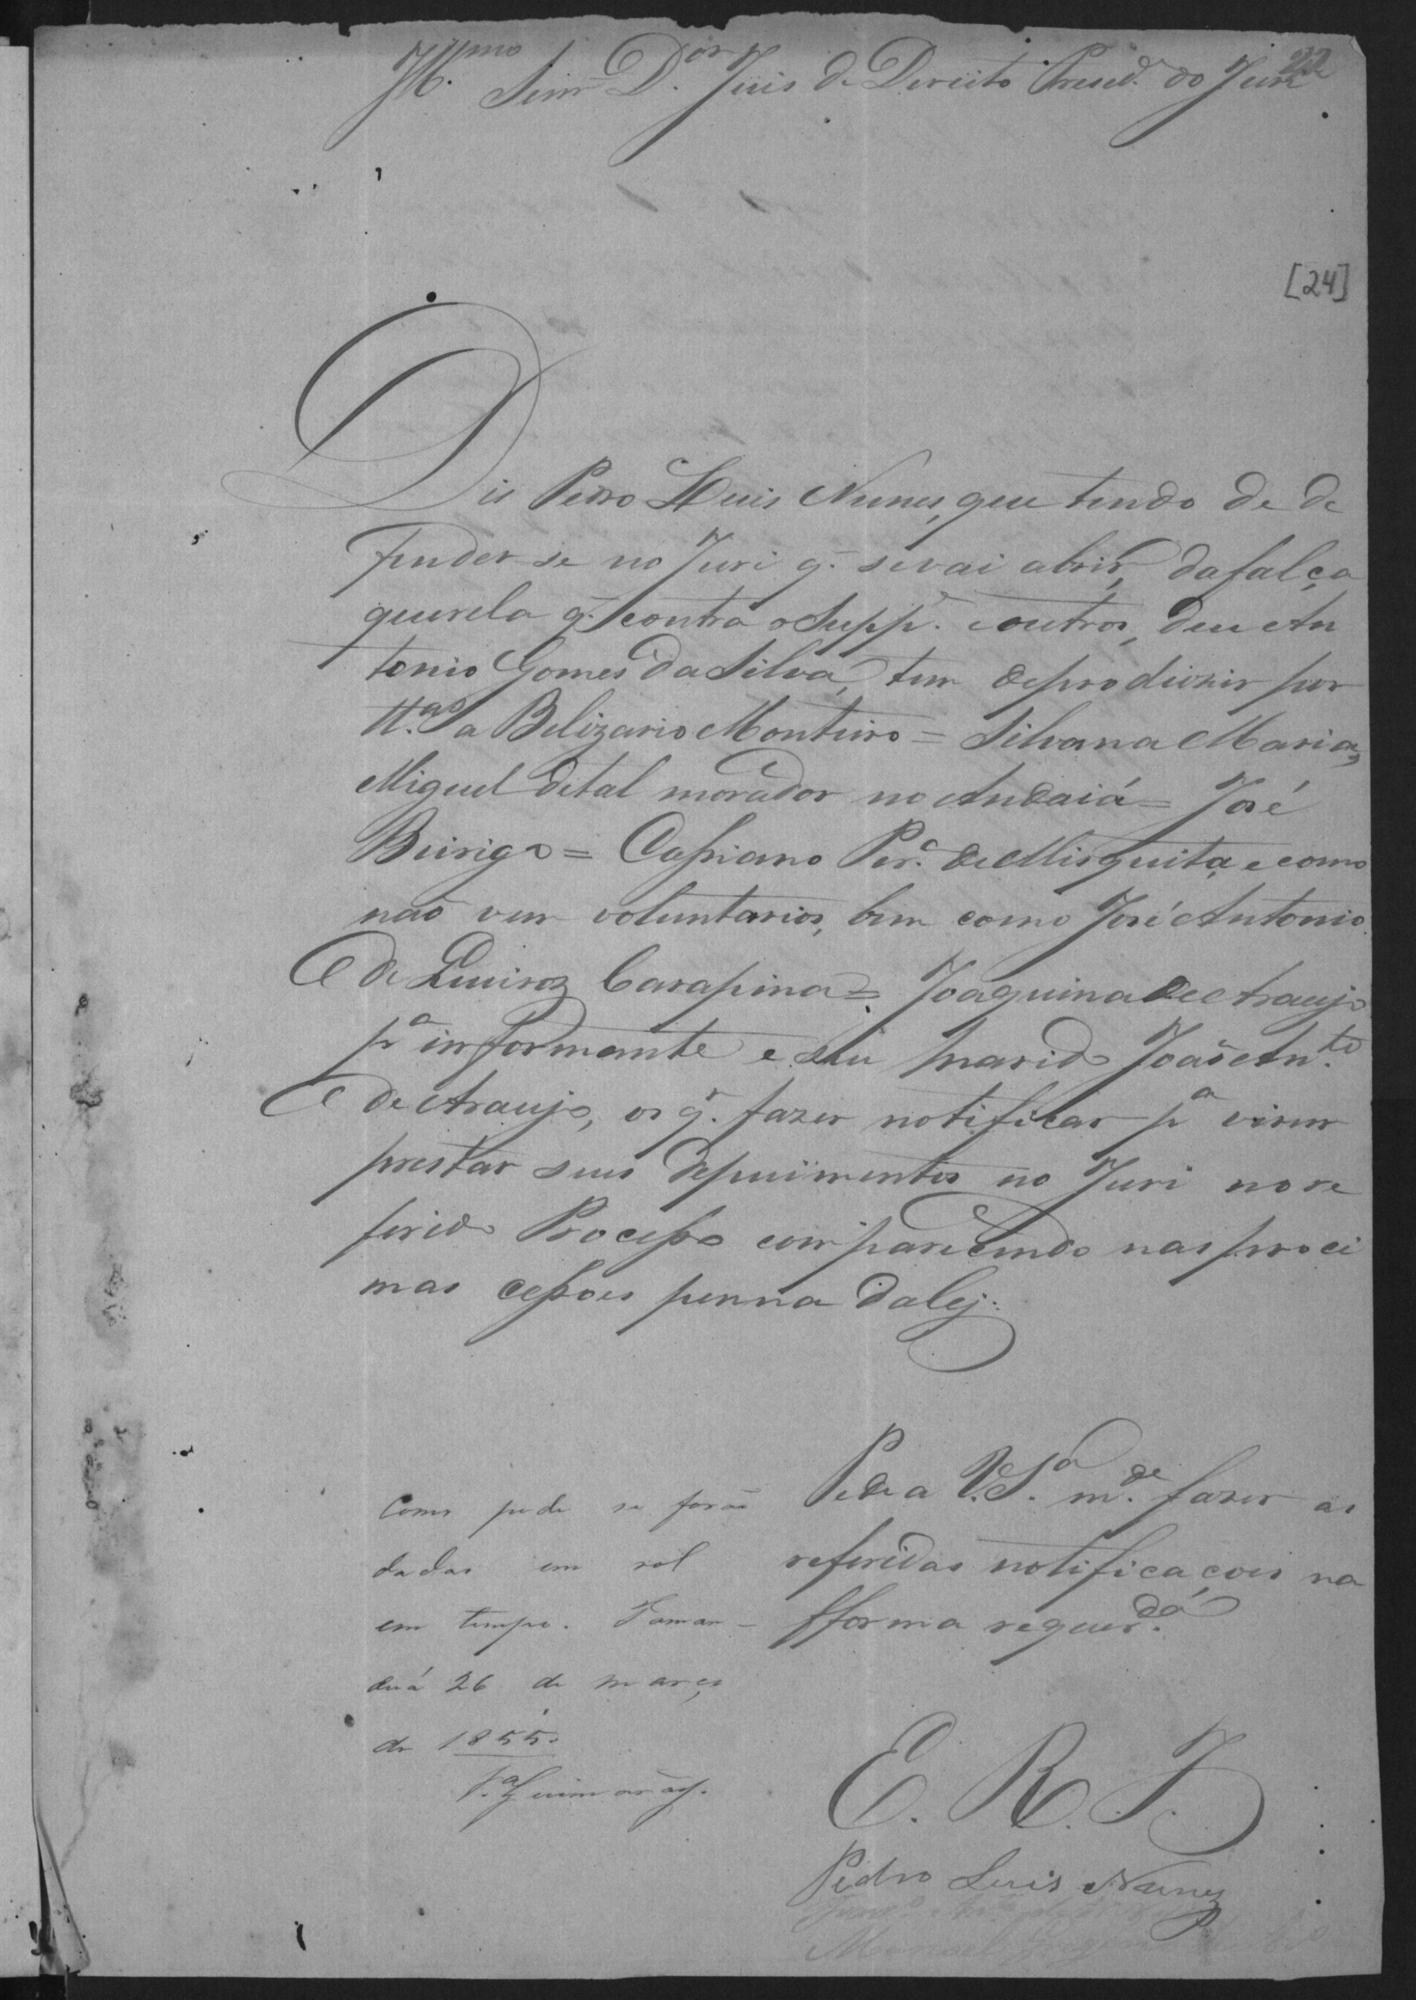 22
Ill.mo Senr D.or Juis de Dereito Presid. do Juri
[24]
Dis Pedro Luis Nunes, que tendo de de
fender-se no Juri q. se vai abrir, da falça
querela q. contra o Supp.e e outros, deu An
tonio Gomes da Silva, tem de produzir por
tt.as a Belizario Monteiro = Silvana Maria,
Miguel de tal morador no Andaiá = José
Buirigo = Cassiano Per.a de Misquita, e como
não vem voluntarios, bem como José Antonio
de Queiroz Carapina = Joaquina de Araujo
p.a informante e seu marido João Ant.o
de Araujo, os q.r fazer notificar p.a virem
prestar seus depuimentos no Juri no re
ferido Processo comparecendo nas proci
mas cessoes penna da lej.
Pede a V.S.a m.de fazer as
referidas notificaçois na
fforma requer.da
Como pede se forão
dadas em rol
em tempo. Taman-
duá 26 de março
de 1855.
Guimarães.
E. R. J.
Pedro Luis Nunes
Manoel